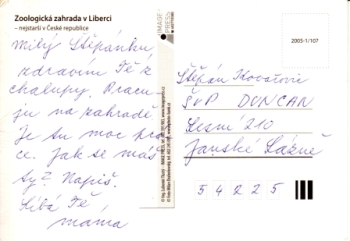 Zoologická zahrada v Liberci
– nejstarší v České republice
Milý Štěpánku,
zdravím Tě z
chalupy. Pracu-
ju na zahradě
Je tu moc prá-
ce. Jak se máš
ty? Napiš.
Líbá Tě
máma
IMAGE
PRESS
2005-1/107
Štěpán
ŠvP DUNCAN
Lesní 210
Janské Lázně
54225